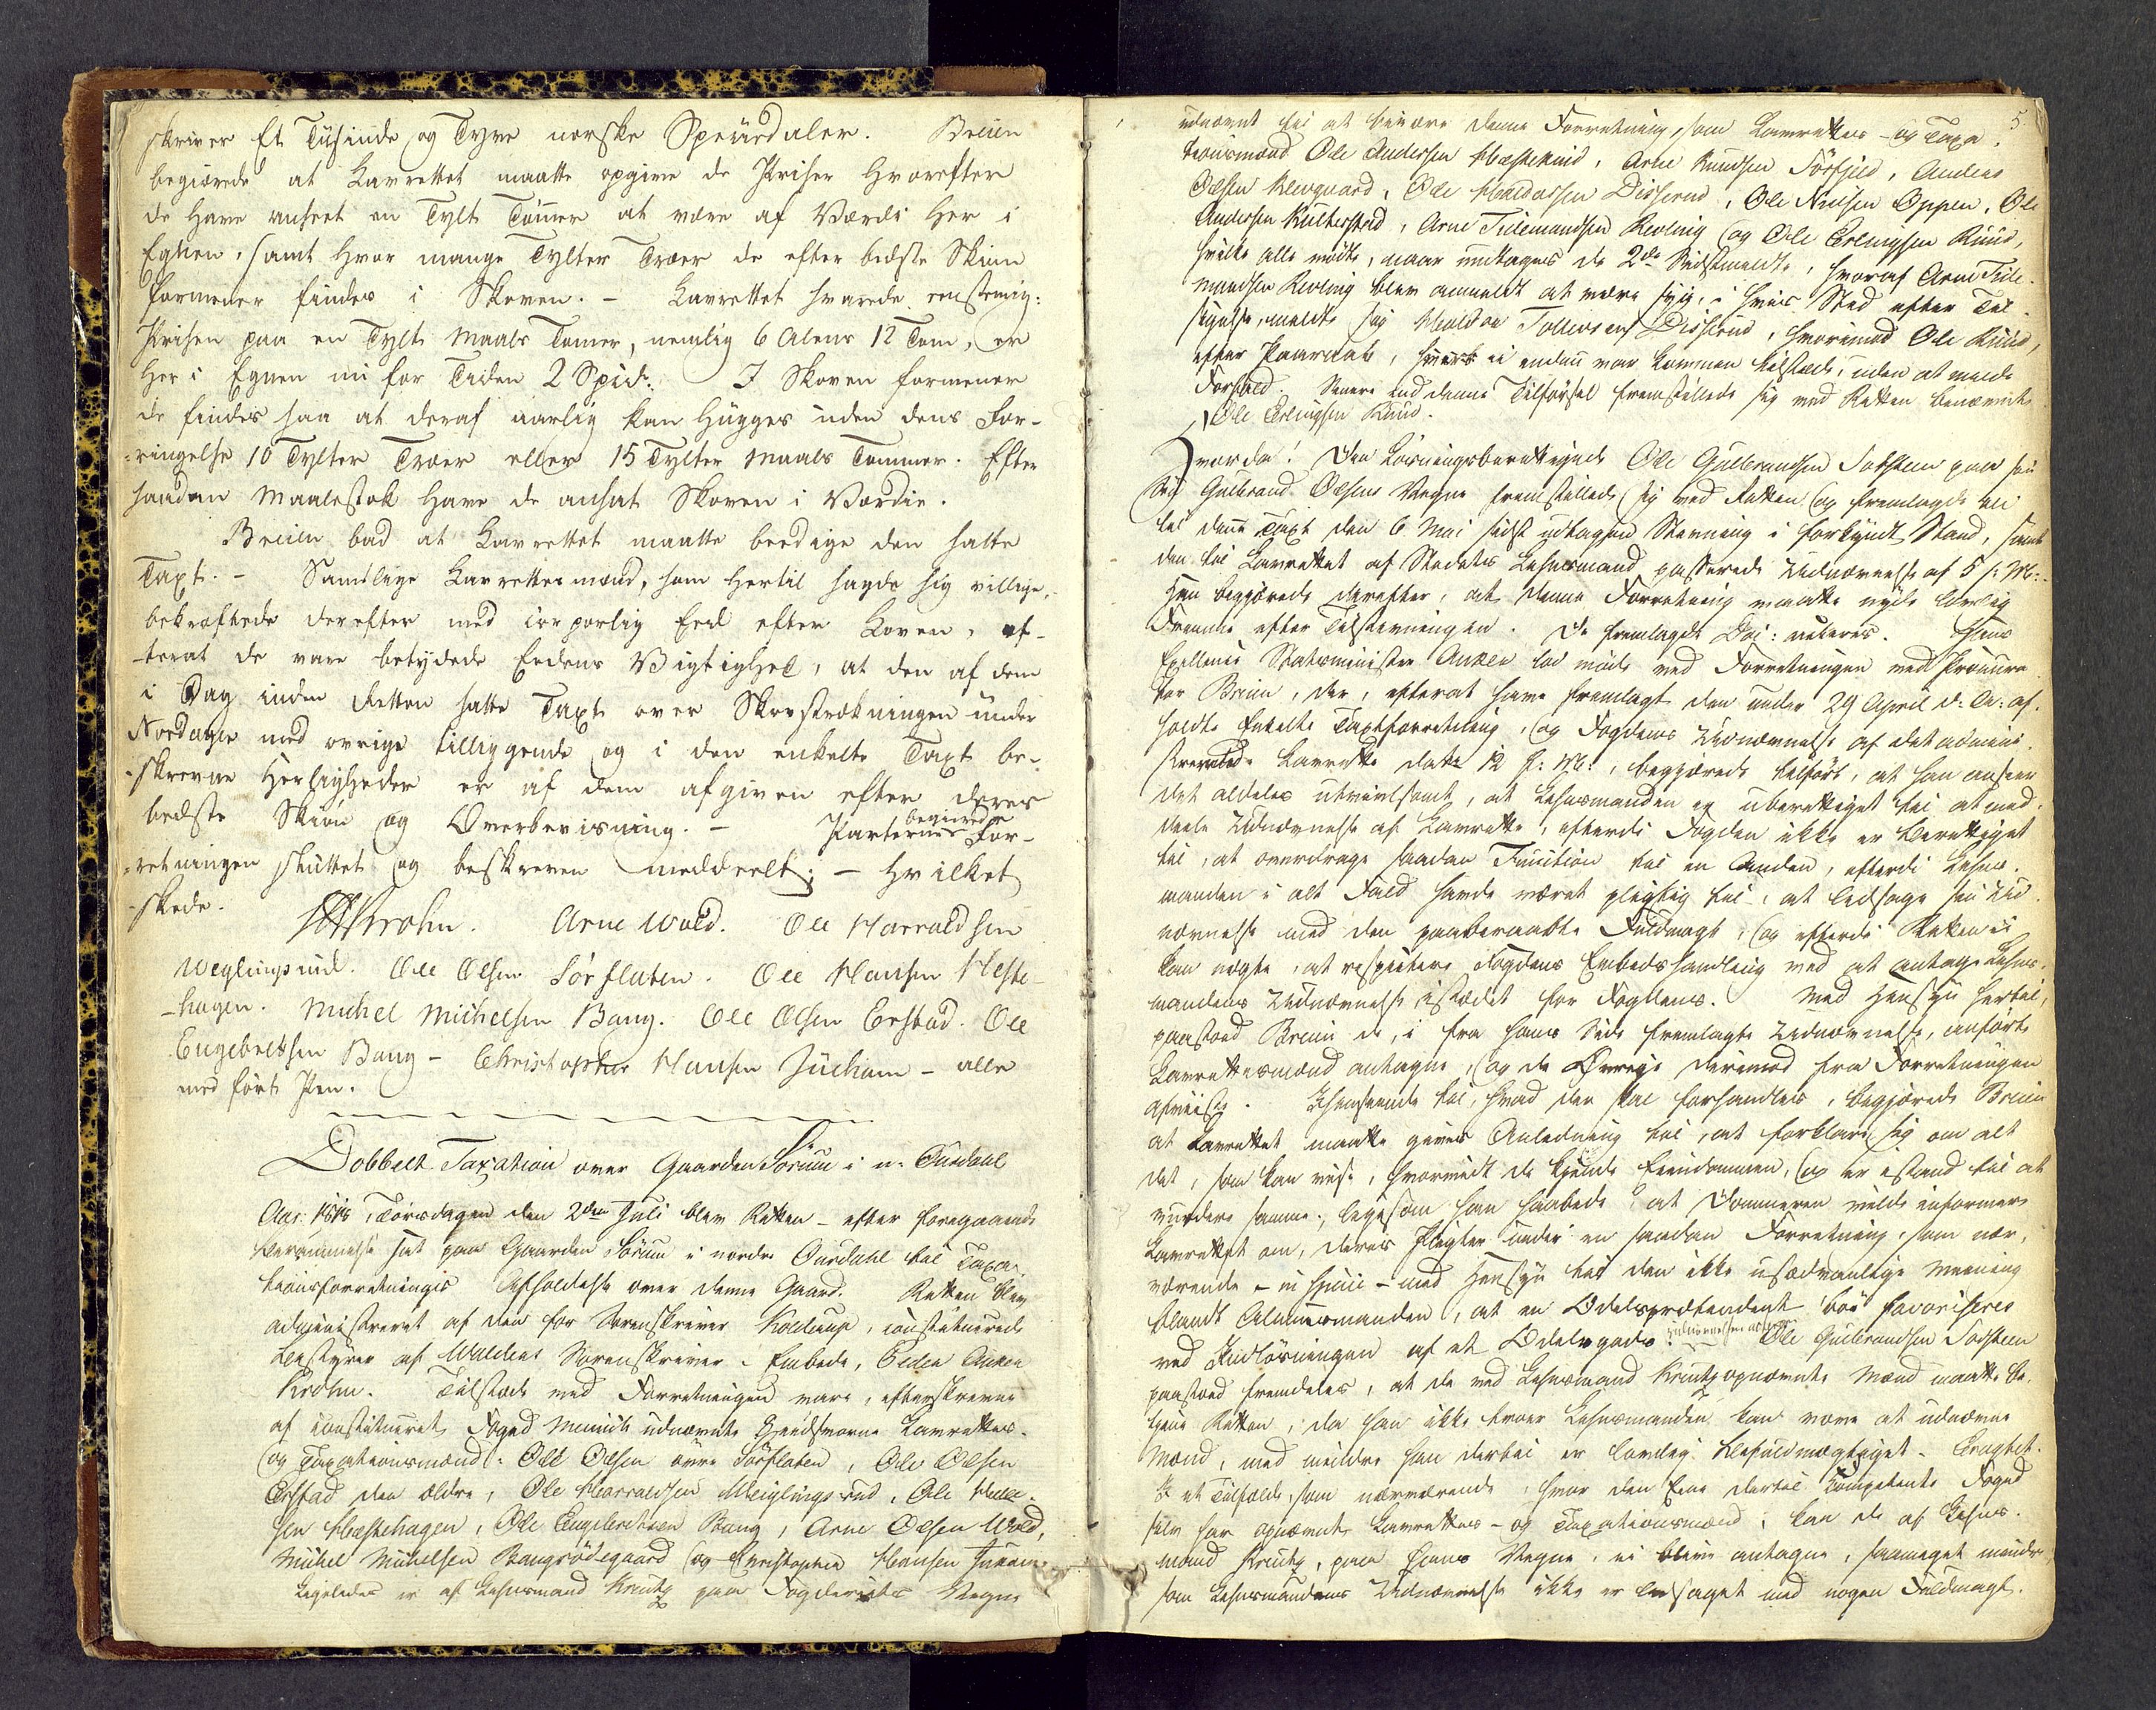 skriver Et Tusinde og Tyve norske Speciedaler. Breien
begiærede at Lavrettet maatte opgive de Priser hvorefter
de have anseet en Tylt Tømmer at være af Værdi her i
Egnen, samt hvor mange Tylter Træer de efter bedste Skiøn
formener findes i Skoven. - Lavrettet svarede eenstemig:
Prisen paa en Tylt Maals Tømer, nemlig 6 Alens 12 Tom, er
her i Egnen nu for Tiden 2 Spdr. I Skoven formener
de findes saa at deraf aarlig kan hugges uden dens For-
ringelse 10 Tylter Træer eller 15 Tylter Maals Tømmer. Efter
saadan Maalestok have de ansat Skoven i Værdie.
Breien bad at Lavrettet maatte beedige den satte
Taxt. - Samtlige Lavrettesmænd, som hertil sagde sig villige,
bekræftede derefter med corporlig Eed efter Loven, ef-
terat de vare betydede Eedens Vigtighed, at den af dem
i Dag inden Retten satte Taxt over Skovstrækningen under
Nordagie med øvrige tilliggende og i den enkelte Taxt be-
skrevne Herligheder er af dem afgiven efter deres
bedste Skiøn og Overbevisning. - Parterne begierede For-
retningen sluttet og beskreven meddeelt; - hvilket
skede.
Krohn. Arne Wold. Ole Harraldsen
Weglingsrud. Ole Olsen Sørflaten. Ole Hansen Heste-
hagen. Michel Michelsen Bang. Ole Olsen Erstad. Ole
Engebretsen Bang - Christopher Hansen Jucham - alle
med ført Pen.
Dobbelt Taxation over Gaarden Sørum i n. Ourdahl
Aar 1818, Torsdagen den 2den Juli blev Retten - efter foregaaende
Berammelse sat paa Gaarden Sørum i nordre Ourdahl til Taxa-
tionsforretningis Afholdelse over denne Gaard. Retten blev
administreret af den for Sorenskriver Koldrup, constituerede
Bestyrer af Waldens Sorenskriver-Embede, Peder Anker
Krohn. Tilstæde ved Forretningen vare, efterskrevne
af constitueret Foged Munich udnævnte Eedsvorne Lavrettes-
og Taxationsmænd: Ole Olsen øvre Sørflaten, Ole Olsen
Erstad den ældre, Ole Harraldsen Meiglingsrud, Ole Han-
sen Hestehagen, Ole Engebretsen Bang, Arne Olsen Wold,
Michel Michelsen Bangsødegaard og Christopher Hansen Juham
Ligeledes er af Lehnsmand Kreutz paa Fogderiets Vegne
5
udnævnt til at bivære denne Forretning, som Lavrettes- og Taxa-
tionsmænd Ole Andersen Hestekind, Arne Knudsen Sørsjed, Anders
Olsen Klevgaard, Ole Haldorsen Disserud, Ole Nielsen Oppen, Ole
Andersen Kulterstad, Arne Tidemandsen Revling og Ole Erlingsen Ruud,
hvilke alle mødte, naar undtages de 2de Sidstmeldte, hvoraf Arne Tide-
mandsen Revling blev anmeldt at være syg, i hvis Sted efter Til-
sigelse, meldte sig Haldor Tollevsens Disserud, hvorimod Ole Ruud,
efter Paaraab, ei endnu var kommen tilstæde, uden at melde
Forfald. Senere end denne Tilførsel fremstillede sig ved Retten benævnte
Ole Erlingsen Ruud.
Hvorda! Den Løsningsberettigede Ole Gulbrandsen Jutsteen paa sin
Søn Gulbrand Olsens Vegne fremstillede sig ved Retten og fremlagde en
til denne Taxt den 6 Mai sidst udtagen Stevning i forkyndt Stand, samt
den til Lavrettet af Stedets Lehnsmand passerede Udnævnelse af 5 s: M:
Han begjærede derefter, at denne Forretning maatte nyde lovlig
Fremme efter Tilstevningen. De fremlagde Doc: anteres. Hans
Excellence Statsminister Anker lod møde ved Forretningen ved Procura-
tor Breien, der, efterat have fremlagt den under 29 April d: A: af-
holdte Enkelte Taxtforretning, og Fogdens Udnævnelse af det admini-
strerende Lavrette dat: 12 s: M:, begjærede tilført, at han anseer
det aldeles utvivlsomt, at Lehnsmanden er uberettiget til at med-
deele Udnævnelse af Lavrette, efterdi Fogden ikke er berettiget
til, at overdrage saadan Function til en Anden, efterdi Lehns-
manden i alt Fald havde været pligtig til, at ledsage sin Ud-
nævnelse med den paaberaabte Fuldmagt, og efterdi Retten ei
kan nægte, at respectere Fogdens Embedshandling ved at antage Lehns-
mandens Udnævnelse istædet for Fogdens. Med Hensyn hertil,
paastod Breien de, i fra hans Side fremlagte Udnævnelse, anførte
Lavrettesmænd antagne, og de Øvrige derimod fra Forretningen
afviste. Ihenseende til, hvad der skal forhandles, begjærede Breien
at Lavrettet maatte gives Anledning til, at forklare sig om alt
det, som kan vise, hvorvidt de kjende Eiendommen, og er istand til at
vurdere samme, ligesom han haabede, at Dommeren vilde informere
Lavrettet om, deres Pligter under en saadan Forretning, som nær-
værende - in specie - med Hensyn til den ikke usædvanlige Meening
blandt Almuesmanden, at en Odelsprætendent bør favoriseres
ved Indløsningen af et Odelsgods. Ole Gulbrandsen Jutsteen
paastod fremdeles, at de ved Lehnsmand Kreutz opnævnte Mænd maatte be-
tjene Retten, da han ikke troer Lehnsmanden kan være at udnævne
Mænd, med mindre han dertil er lovlig befuldmægtiget. Eragtet.
I et Tilfælde, som nærværende, hvor den Ene dertil competente Foged
selv har opnævnte Lavrettes- og Taxationsmænd, kan de af Lehns-
mand Kreutz, paa Hans Vegne, ei blive antagne, saameget mindre,
som Lehnsmandens Udnævnelse ikke er ledsaget med nogen Fuldmagt.